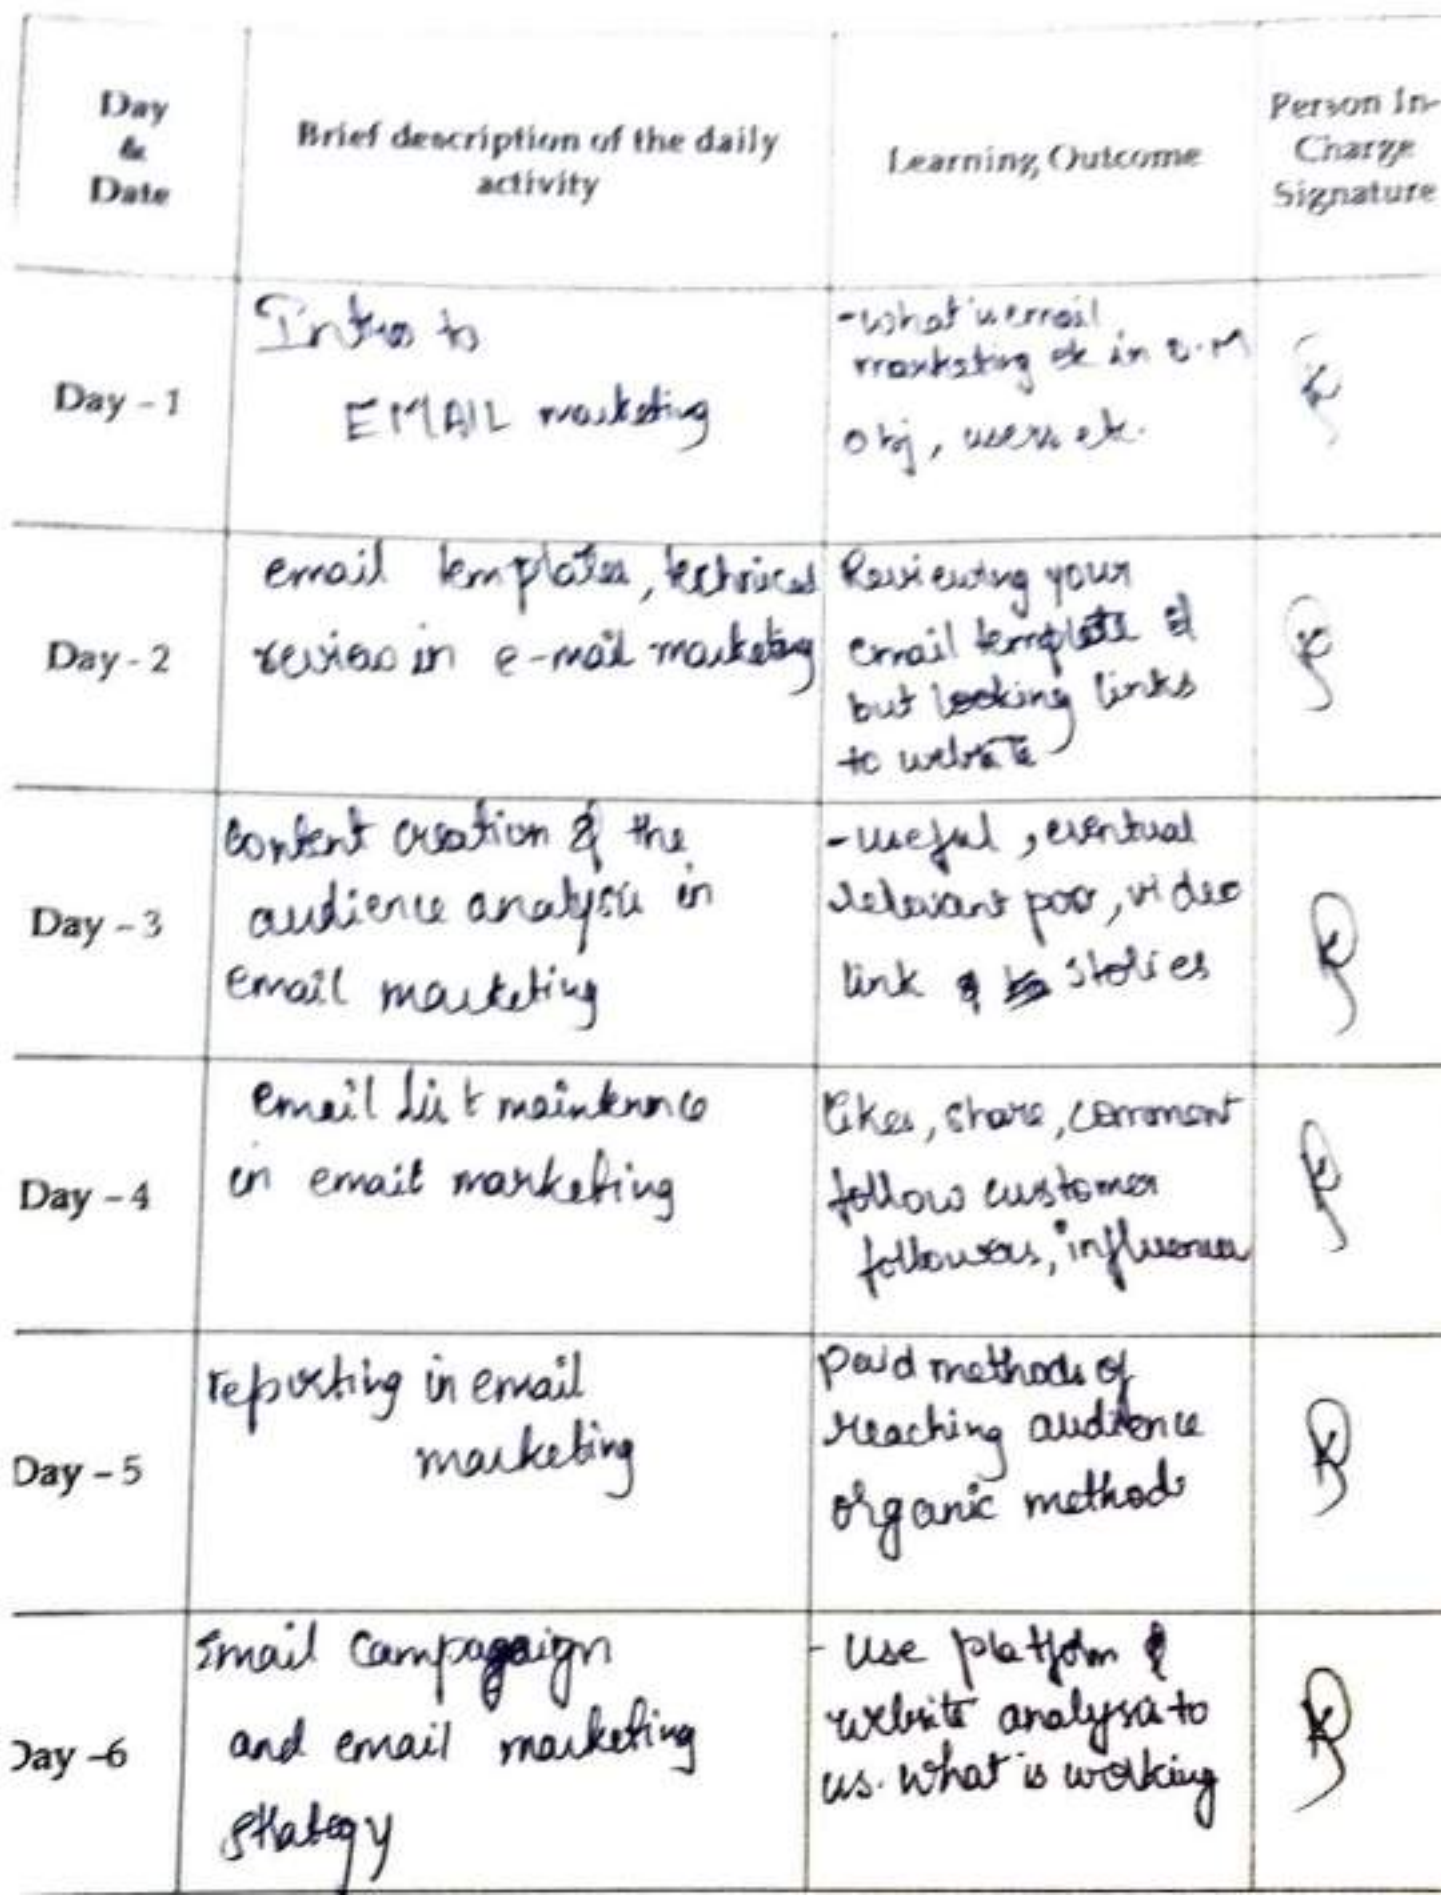 Day
&
Date
Brief description of the daily
activity
Learning Outcome
Person In-
Charge
Signature
Day - 1
Intro to
EMAIL marketing
-what is email
marketing etc in e.M
obj, users etc.
Day - 2
email templates, technical
review in e-mail marketing
Reviewing your
email template &
but looking links
to website
Day - 3
content creation & the
audience analysis in
email marketing
-useful, eventual
relevant post, video
link & stories
Day - 4
email list maintenance
in email marketing
likes, share, comment
follow customer
followers, influencer
Day - 5
reporting in email
marketing
paid methods of
reaching audience
organic methods
Day -6
Email campagaign
and email marketing
strategy
- Use platform &
website analysis to
us. what is working